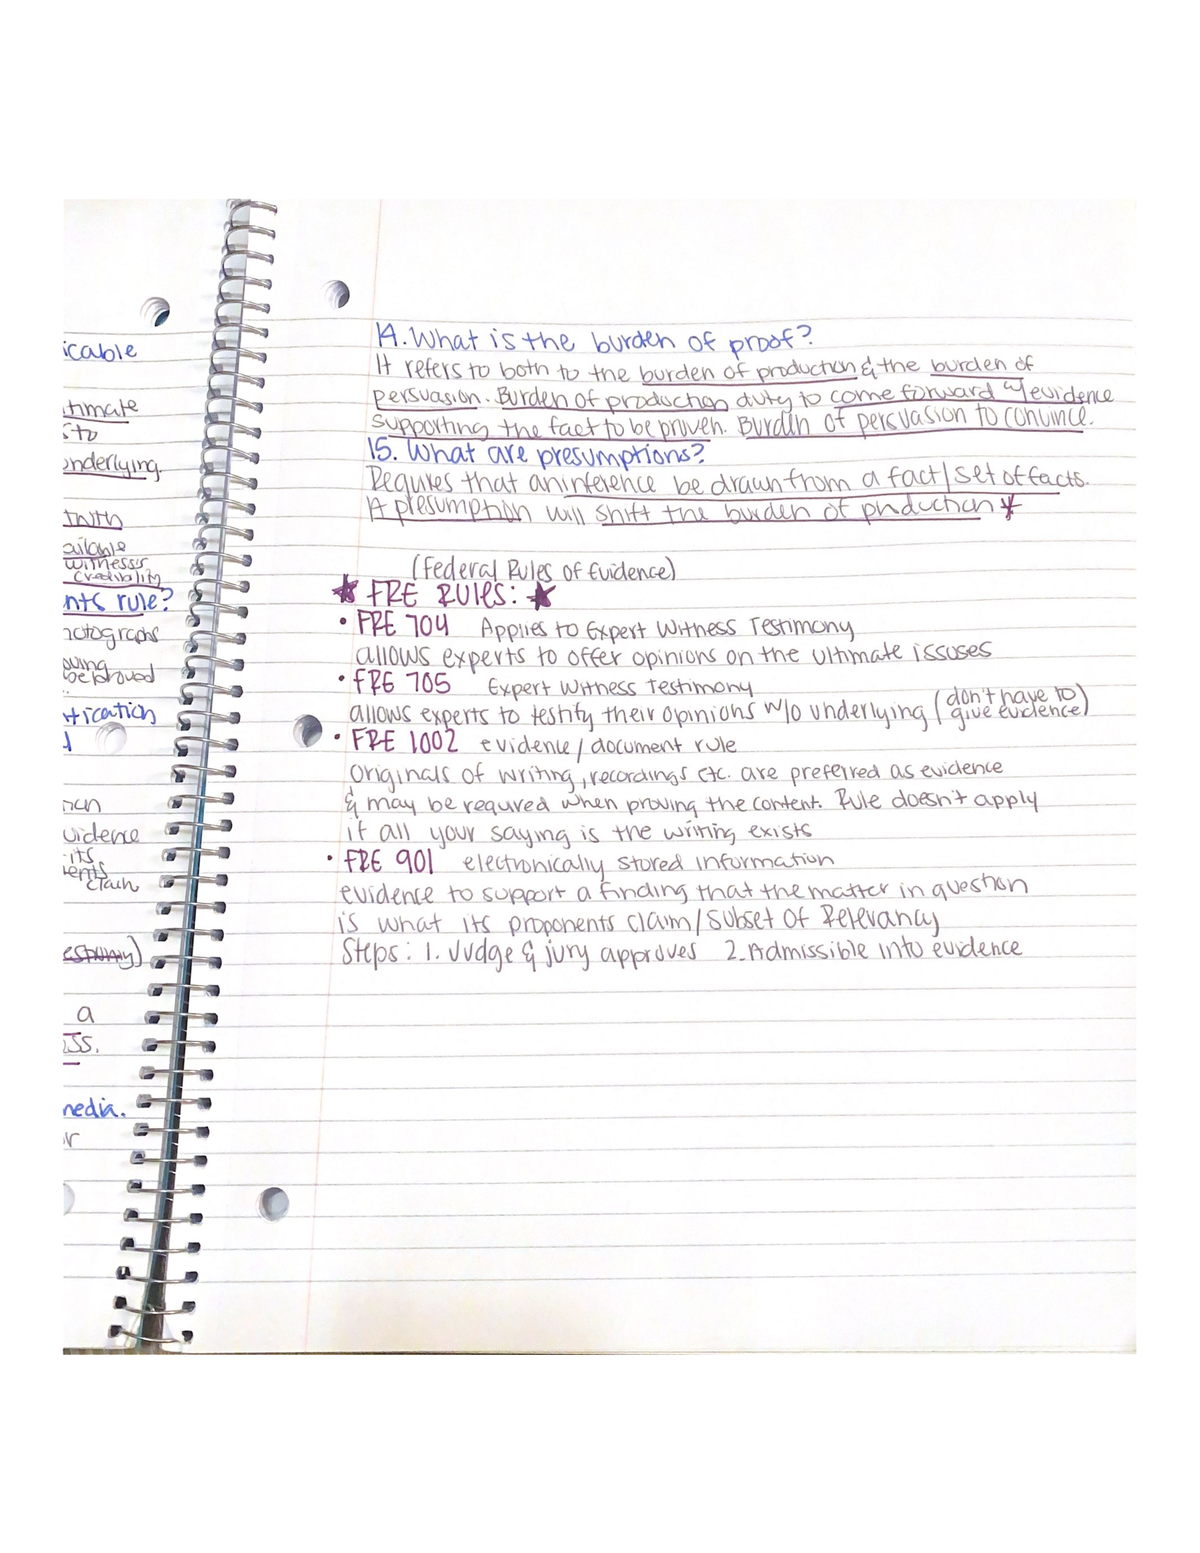 icable
timate
s to
underlying.
truth
available
witness's
credibility
nts rule?
hotographs
oving
be proved
tication
evidence
its
claim
a
media.
14. What is the burden of proof?
It refers to both to the burden of production & the burden of
persuasion. Burden of production duty to come forward w/ evidence
supporting the fact to be proven. Burden of persuasion to convince.
15. What are presumptions?
Requires that an inference be drawn from a fact/set of facts.
A presumption will shift the burden of production *
(Federal Rules of Evidence)
★ FRE RUles: ★
• FRE 704 Applies to Expert Witness Testimony
allows experts to offer opinions on the ultimate issuses
• FRE 705 Expert Witness Testimony
allows experts to testify their opinions w/o underlying (don't have to give evidence)
• FRE 1002 evidence/document rule
Originals of writing, recordings etc. are preferred as evidence
& may be required when proving the content. Rule doesn't apply
if all your saying is the writing exists
• FRE 901 electronically stored information
evidence to support a finding that the matter in question
is what its proponents claim/subset of Relevancy
Steps: 1. Judge & jury approves 2. Admissible into evidence